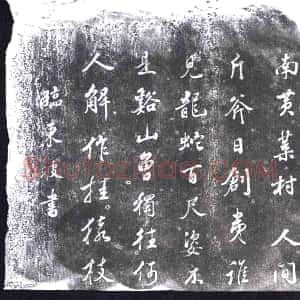 南黄葉村 人間
斤斧日創夷誰
見龍蛇百尺姿不
是谿山曾獨往何
人解作挂猿枝
臨東坡書